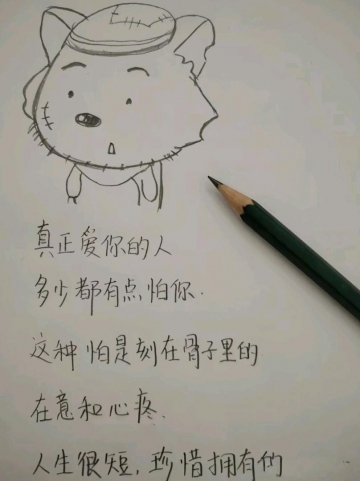 真正爱你的人
多少都有点怕你.
这种怕是刻在骨子里的
在意和心疼.
人生很短,珍惜拥有的